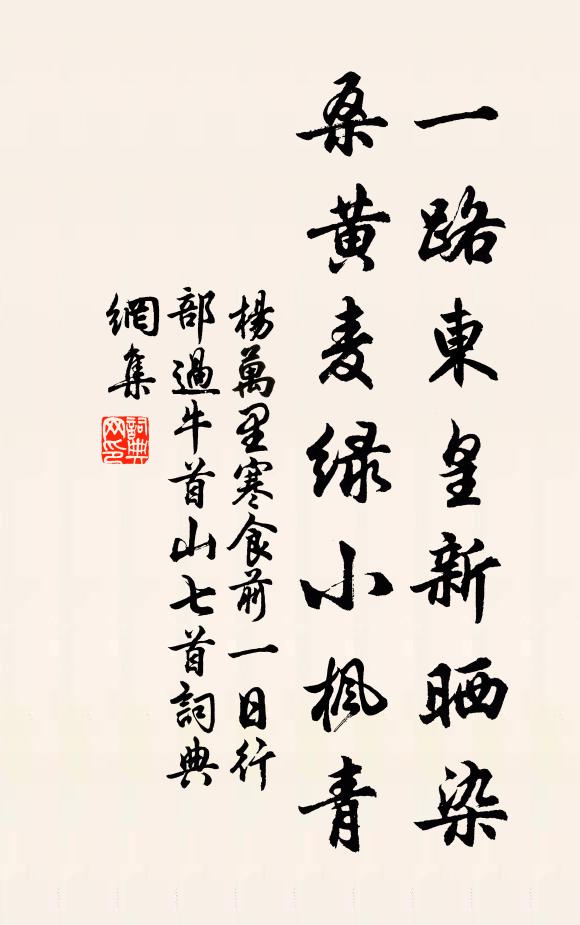 一路東皇新晒染
桑黄麦緑小楓青
楊萬里寒食前一日行
部過牛首山七首詞典
網集
詞典
网印